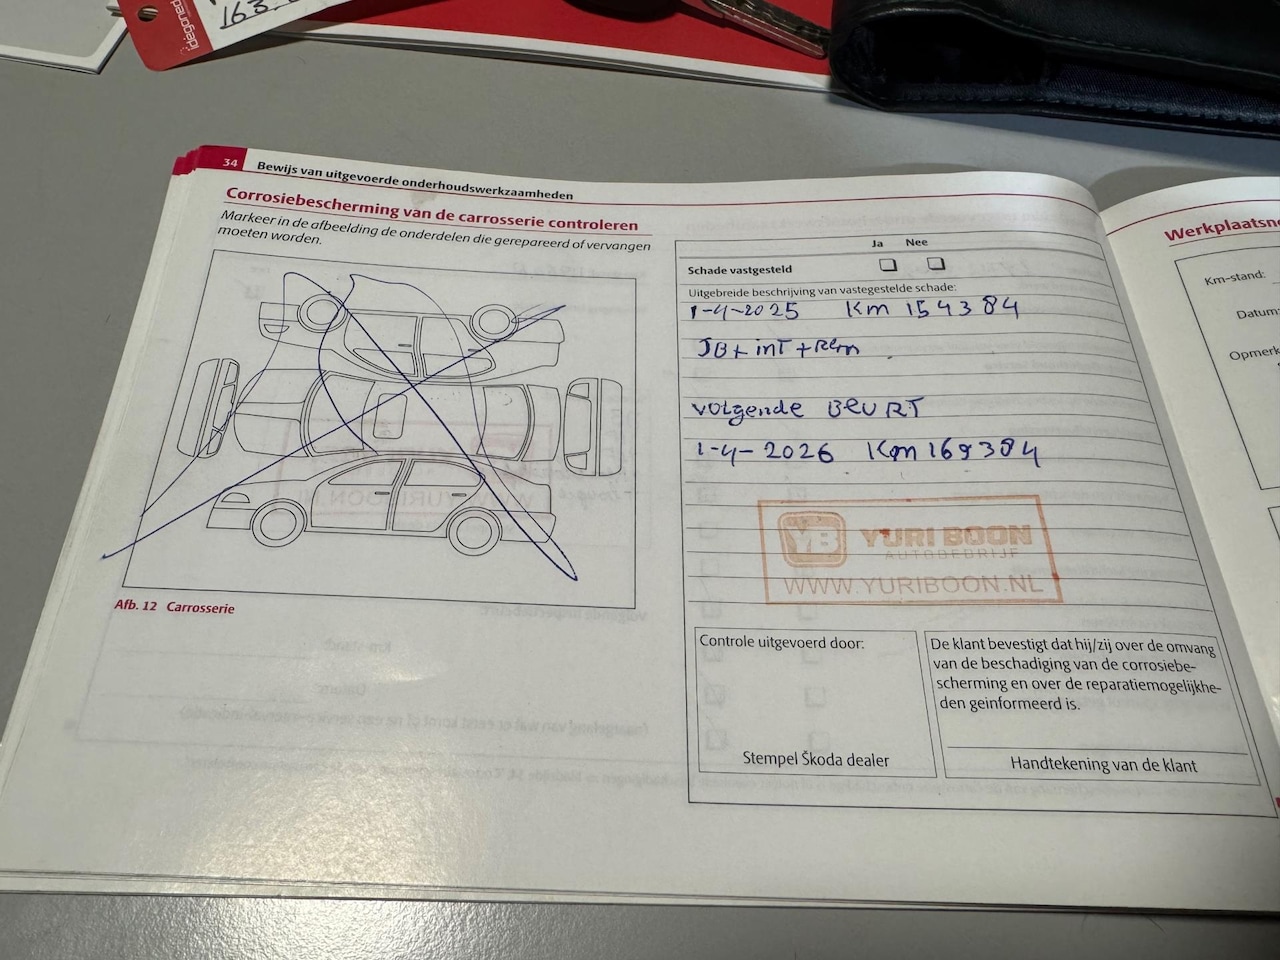 163.
idegoned
34 Bewijs van uitgevoerde onderhoudswerkzaamheden
Corrosiebescherming van de carrosserie controleren
Markeer in de afbeelding de onderdelen die gerepareerd of vervangen
moeten worden.
Afb. 12 Carrosserie
Ja Nee
Schade vastgesteld
Uitgebreide beschrijving van vastegestelde schade:
1-4-2025 Km 154384
JB + inT + Rem
volgende BeuRT
1-4-2026 Km 169384
YB YURI BOON
AUTOBEDRIJF
WWW.YURIBOON.NL
Controle uitgevoerd door:
Stempel Škoda dealer
De klant bevestigt dat hij/zij over de omvang
van de beschadiging van de corrosiebe-
scherming en over de reparatiemogelijkhe-
den geinformeerd is.
Handtekening van de klant
Werkplaatsn
Km-stand:
Datum:
Opmerk